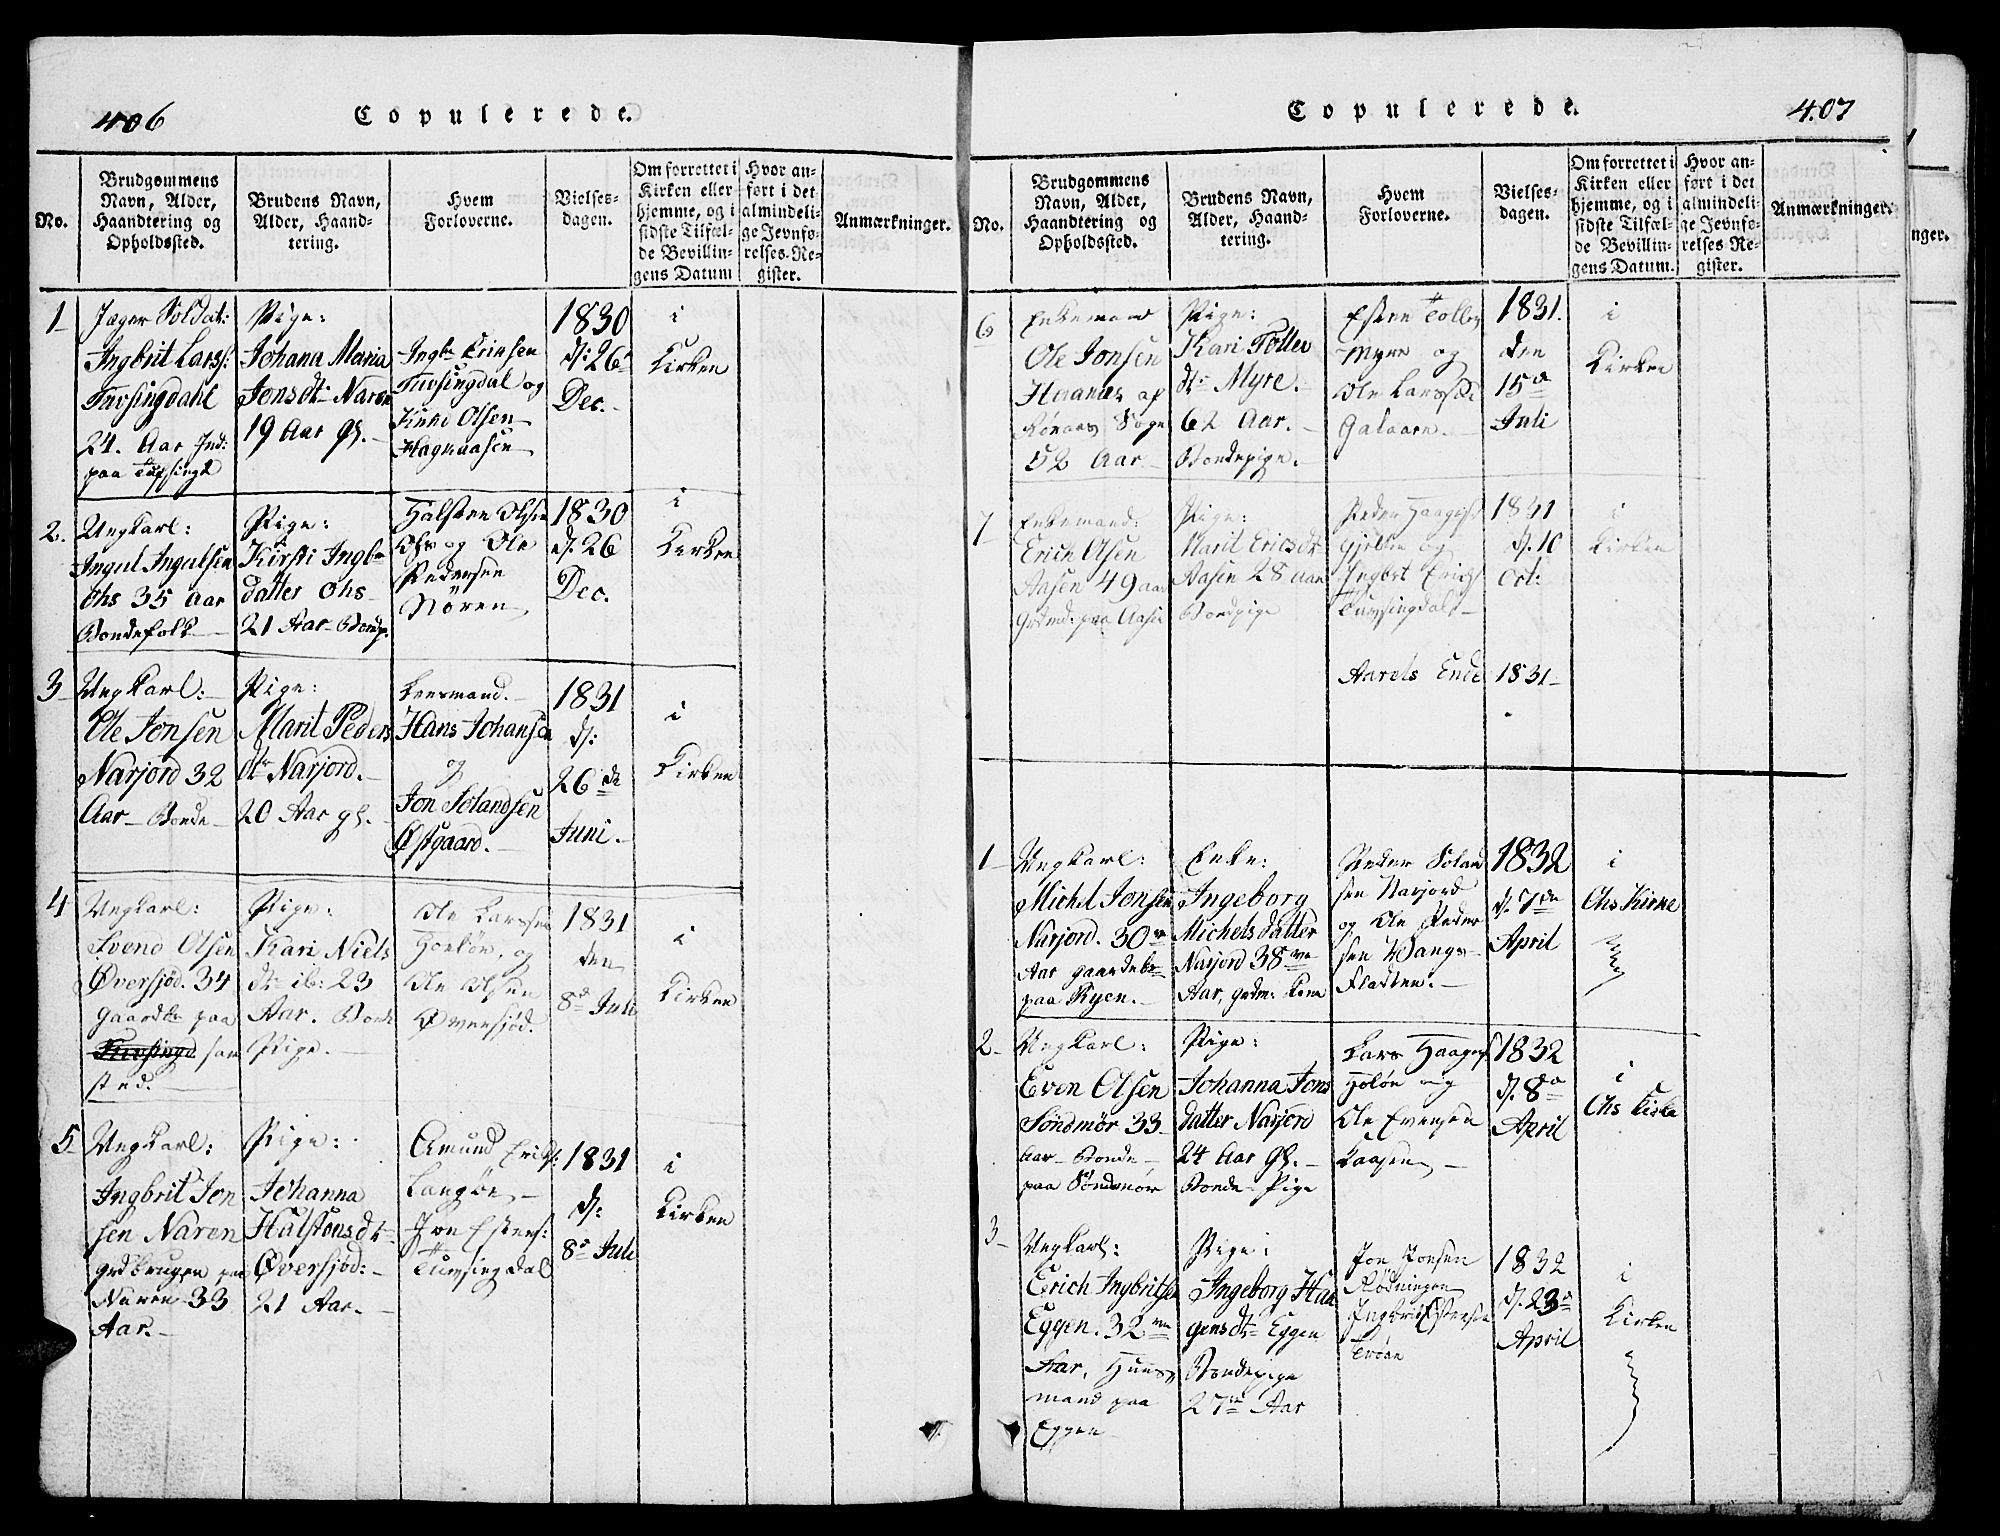 406
Copulerede.
No.
Brudgommens
Navn, Alder,
Haandtering og
Opholdssted.
Brudens Navn,
Alder, Haand-
tering.
Hvem
Forloverne.
Vielses-
dagen.
Om forrettet i
Kirken eller
hjemme, og i
sidste Tilfæl-
de Bevillin-
gens Datum
Hvor an-
ført i det
almindeli-
ge Jevnfø-
relses-Re-
gister.
Anmærkninger.
1
Jæger Soldat:
Ingbrit Lars:
Tufsingdahl
24. Aar Ind:
paa
Pige:
Johana Maria
Jonsdtr Naren
19 Aar gl.
Ingbr Erinsen
Tufsingdal og
Knud Olsen
1830
d: 26
Dec.
i
Kirken
2.
Ungkarl:
Ingul Ingulsen
Ohs 35 Aar
Bondefolk
Pige:
Kirsti Ingbr
datter Ohs
21 Aar Bondp.
Halsten Olsen
Ohs og Ole
Pedersen
Nören
1830
d. 26
Dec.
i
Kirken
3
Ungkarl:
Ole Jonsen
Narjord 32
Aar Bonde
Pige:
Marit Peders
dtr Narjord.
20 Aar gl.
Lensmand.
Hans Johansen
og
Jon Solandsen
Østgaard.
1831
d:
26de
Juni.
i
Kirken
4
Ungkarl:
Svend Olsen
Øversjöd. 34
Gaardbr paa
sam
sted.
Pige:
Kari Niels
dtr ib: 23
Aar. Bonde
Pige.
Ole Larssen
Holöen, og
Ole Olsen
Øversjöd.
1831
den
8de Juli
i
Kirken
5
Ungkarl:
Ingbrit Jon
sen Naren
grdbrugen paa
Naren 33
Aar.
Pige:
Johanna
Halstensdtr
Øversjöd:
21 Aar.
Amund Erichs:
Langöen
Jon Estens:
Tufsingdal
1831
d:
8de Juli
i
Kirken
Copulerede.
407
No.
Brudgommens
Navn, Alder,
Haandtering og
Opholdssted.
Brudens Navn,
Alder, Haand-
tering.
Hvem
Forloverne.
Vielses-
dagen.
Om forrettet i
Kirken eller
hjemme, og i
sidste Tilfæl-
de Bevillin-
gens Datum.
Hvor an-
ført i det
almindeli-
ge Jevnfø-
relses Re-
gister.
Anmærkninger.
nger.
6
Enkemand
Ole Jonsen
af
Röraas Sogn
52 Aar
Pige:
Kari Tolles
dtr Myre.
62 Aar.
Bondepige.
Esten Tolles
Myre og
Ole Larssen
Galaaen.
1831.
den
15de
Juli
i
Kirken
7
Enkemand:
Erich Olsen
Aasen 49 aar
Grdmd: paa Aasen
Pige:
Marit Ericsdtr
Aasen 28 Aar
Bondpige
Peder Haagens
Gjelten og
Ingbrt Erichs
Tufsingdal
1831
d. 10
Oct:
i
Kirken
Aarets Ende 1831
1
Ungkarl:
Michel Jonsen
Narjord. 30
Aar gaardebr
paa Ryen.
Enke:
Ingeborg
Michels datter
Narjord 38
Aar, grdm: Kone
Peder Solan
sen Narjord
og Ole Peder
sen Vangs
Fladten.
1832
d. 7de
April
i
Ohs Kirke
2
Ungkarl:
Even Olsen
Söndmör 33
Aar Bonde
paa Söndmör
Pige:
Johanna Jons
datter Narjord
24 Aar gl.
Bonde Pige
Lars Haagens
Holöen og
Ole Evensen
Laasen
1832
d. 8de
April
i
Ohs Kirke
3
Ungkarl:
Erich Ingbritsen
Eggen. 32
Aar, Huus
mand paa
Eggen
Pige:
Ingeborg Haa
gensdtr Eggen
Bondepige
27 Aar
Jon Jonsen
Ingbrit Estensen
Tröen
1832
d. 23de
April
i
Kirken